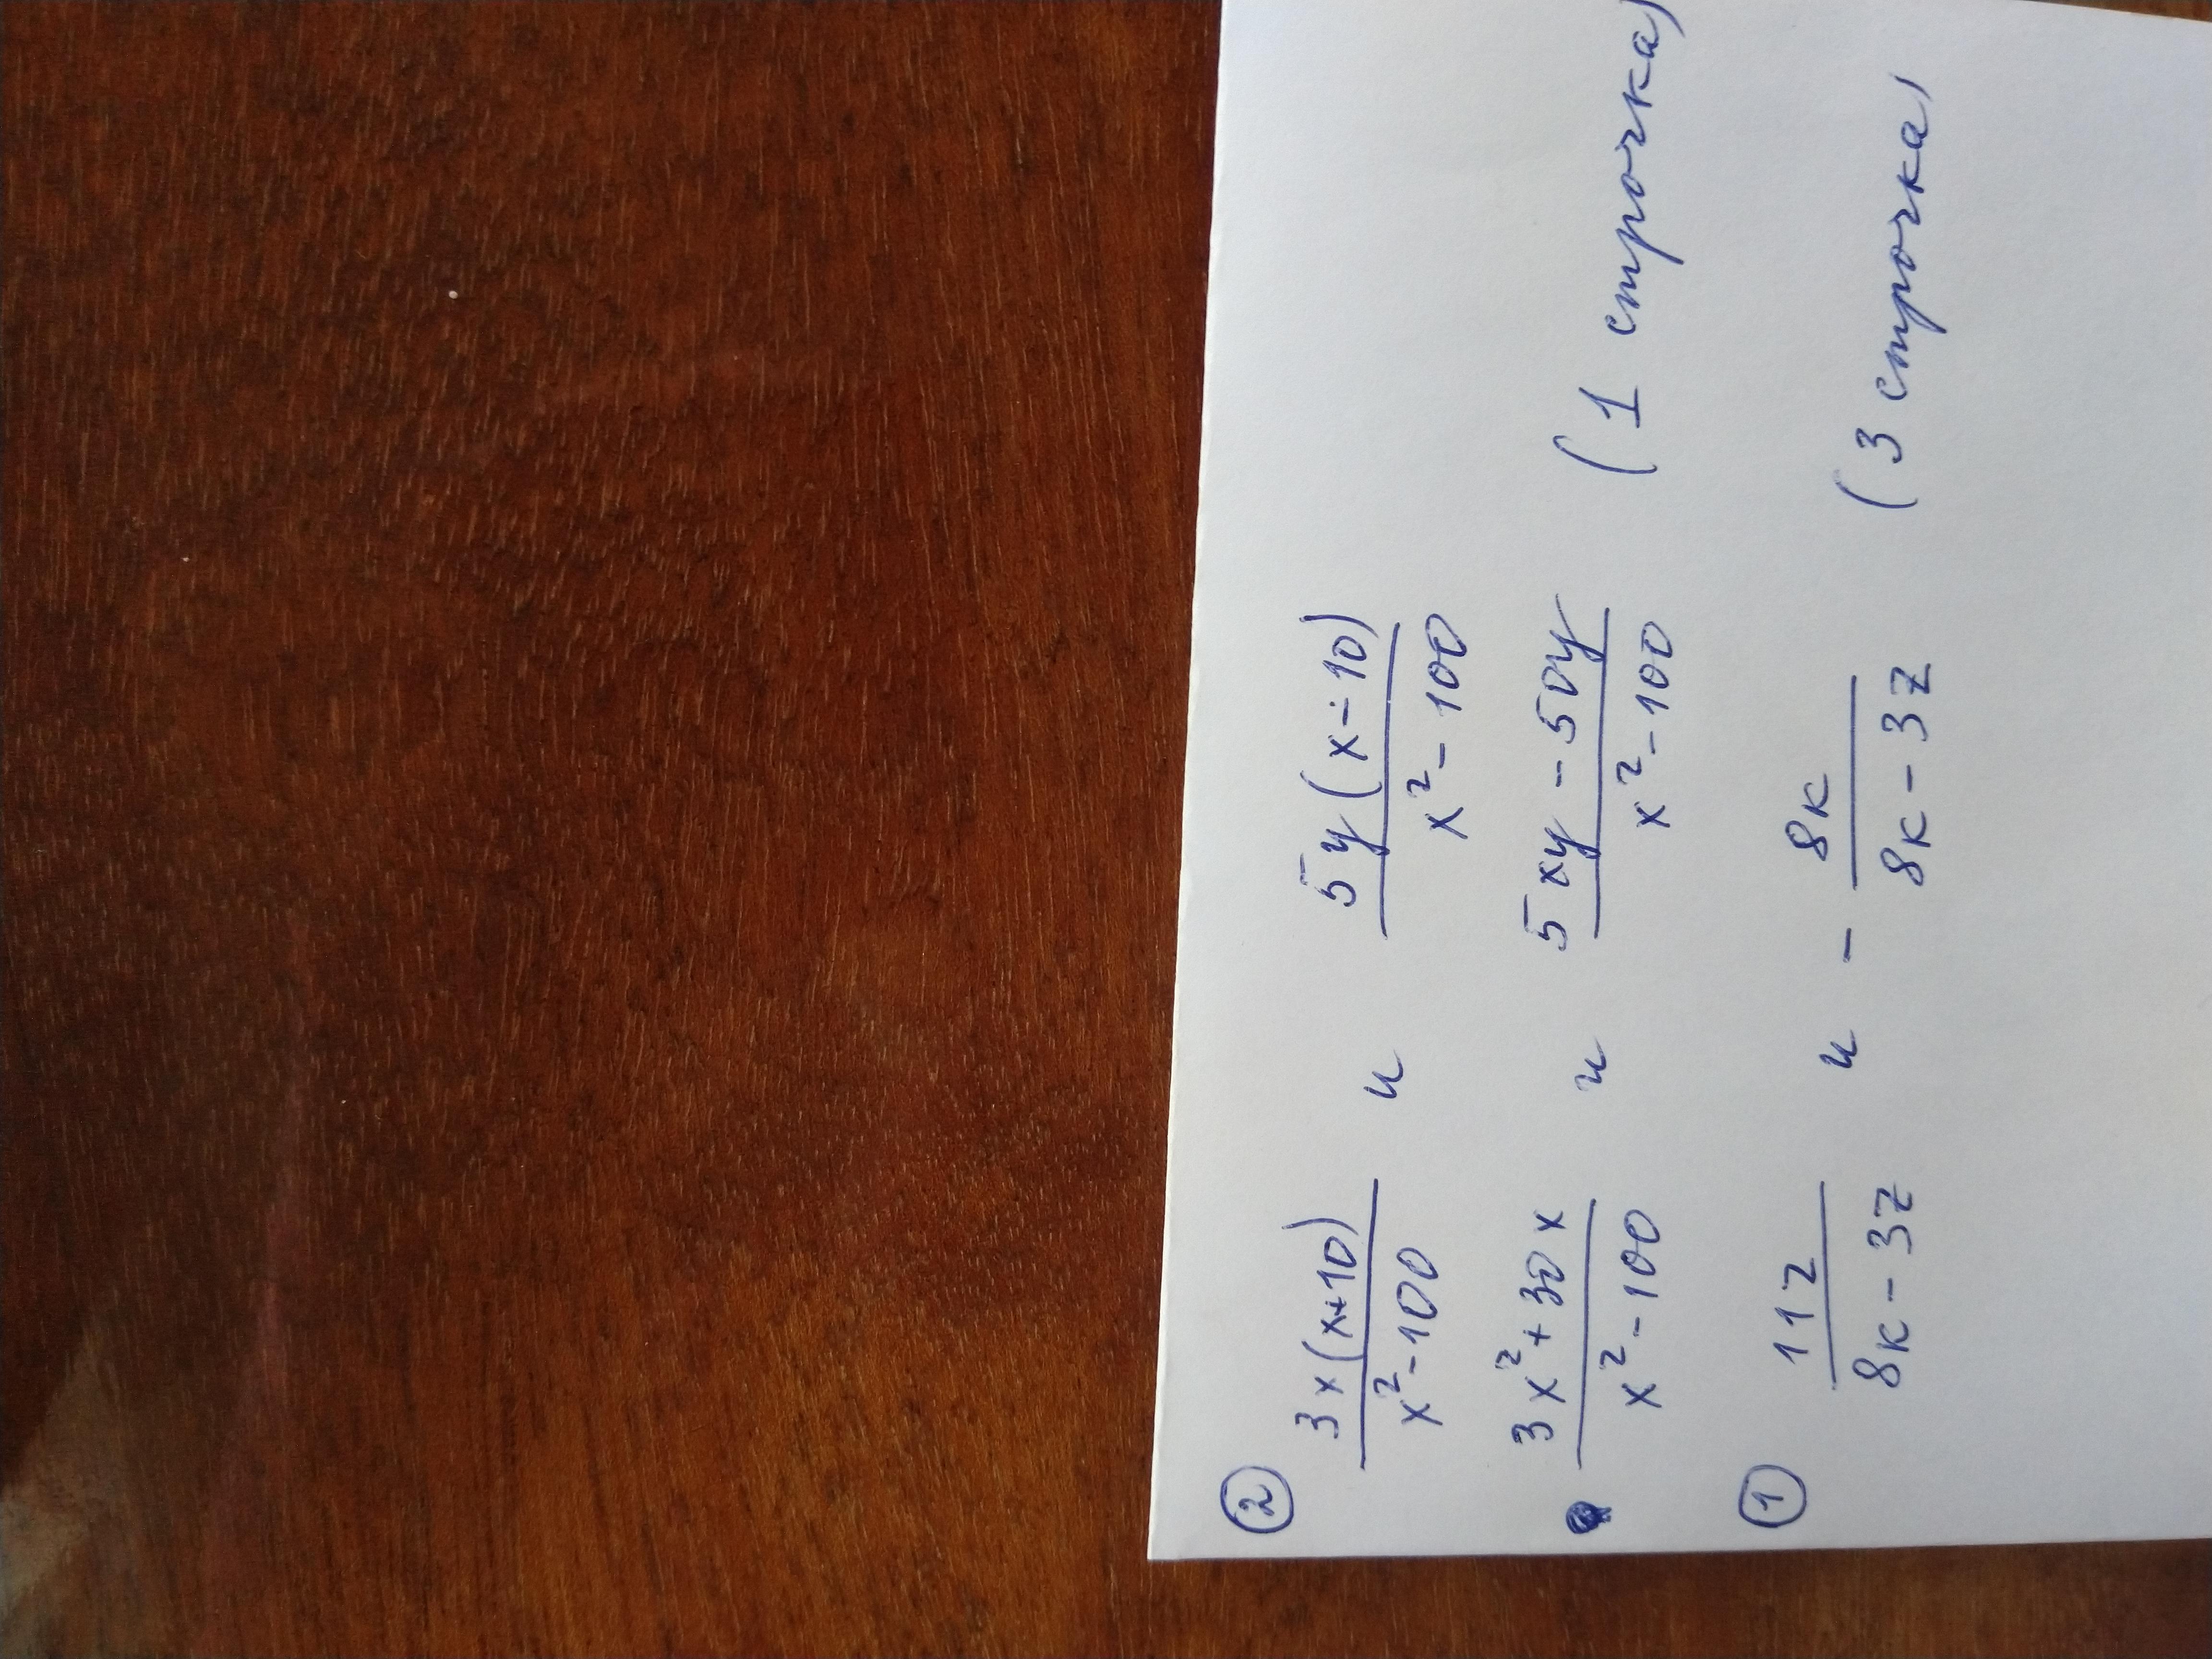 ② 3x(x+10)/x²-100 и 5y(x-10)/x²-100
3x²+30x/x²-100 и 5xy-50y/x²-100 (1 строчка)
① 11z/8к-3z и -8к/8к-3z (3 строчка)